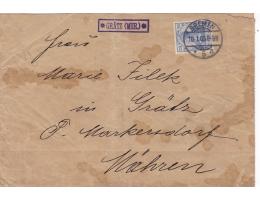 GRÄTZ (MHR.)
BREMEN
Frau
Marie Filek
in Grätz
P. Markersdorf
Mähren